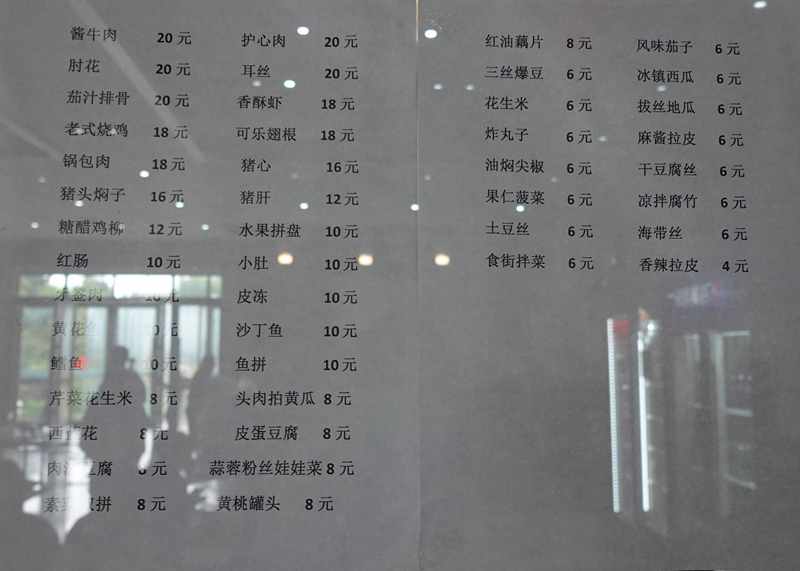 酱牛肉 20元
肘花 20元
茄汁排骨 20元
老式烧鸡 18元
锅包肉 18元
猪头焖子 16元
糖醋鸡柳 12元
红肠 10元
牙签肉 10元
黄花鱼 10元
鳕鱼 10元
芹菜花生米 8元
西兰花 8元
豆腐 8元
拼 8元
护心肉 20元
耳丝 20元
香酥虾 18元
可乐翅根 18元
猪心 16元
猪肝 12元
水果拼盘 10元
小肚 10元
皮冻 10元
沙丁鱼 10元
鱼拼 10元
头肉拍黄瓜 8元
皮蛋豆腐 8元
蒜蓉粉丝娃娃菜 8元
黄桃罐头 8元
红油藕片 8元
三丝爆豆 6元
花生米 6元
炸丸子 6元
油焖尖椒 6元
果仁菠菜 6元
土豆丝 6元
食街拌菜 6元
风味茄子 6元
冰镇西瓜 6元
拔丝地瓜 6元
麻酱拉皮 6元
干豆腐丝 6元
凉拌腐竹 6元
海带丝 6元
香辣拉皮 4元